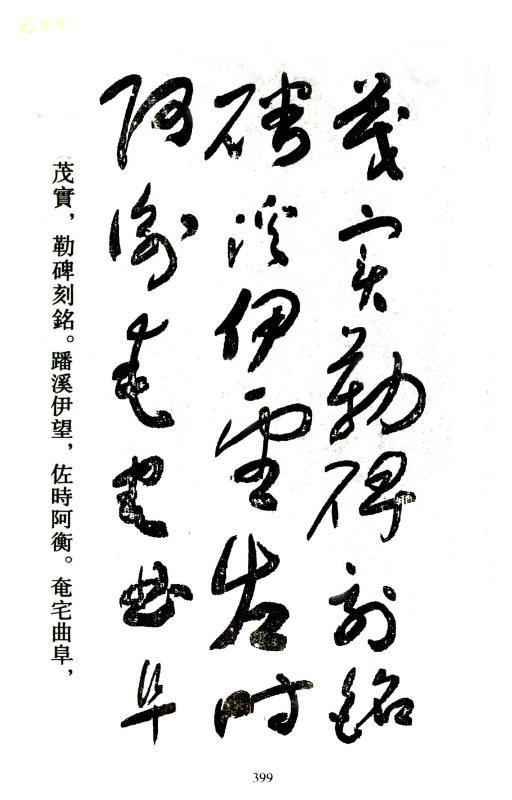 茂實勒碑刻銘
磻溪伊望佐時
阿衡奄宅曲阜
茂實，勒碑刻銘。蹯溪伊望，佐時阿衡。奄宅曲阜，
399